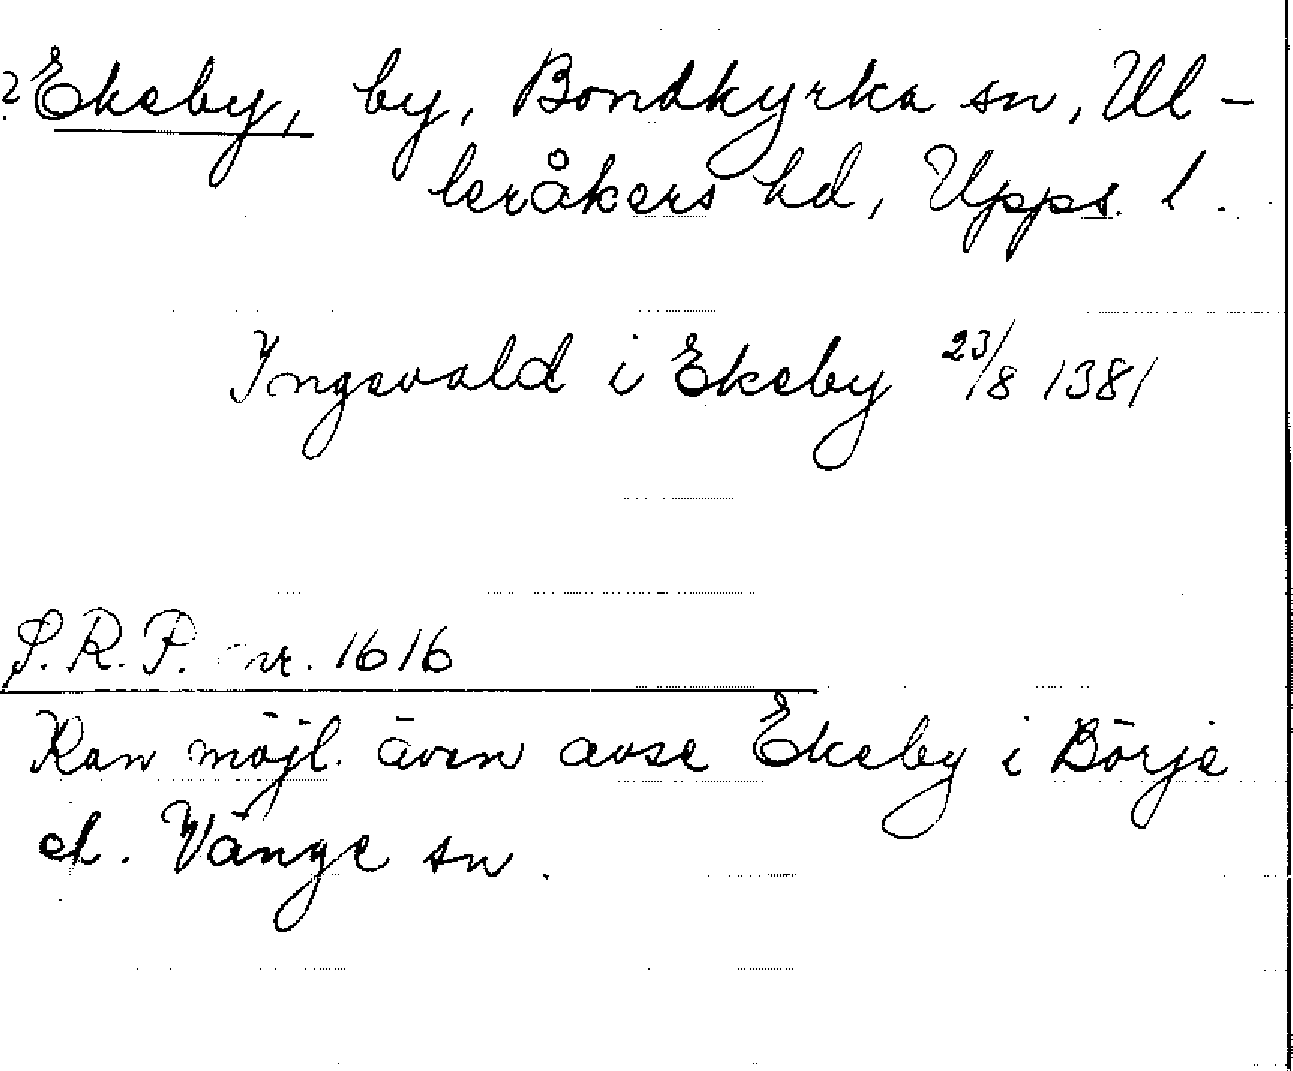 ? Ekeby, by, Bondkyrka sn, Ul-
leråkers hd, Upps. l.
Ingevald i Ekeby 23/8 1381
S.R.P. nr. 1616
Kan möjl. även avse Ekeby i Börje
el. Vänge sn.